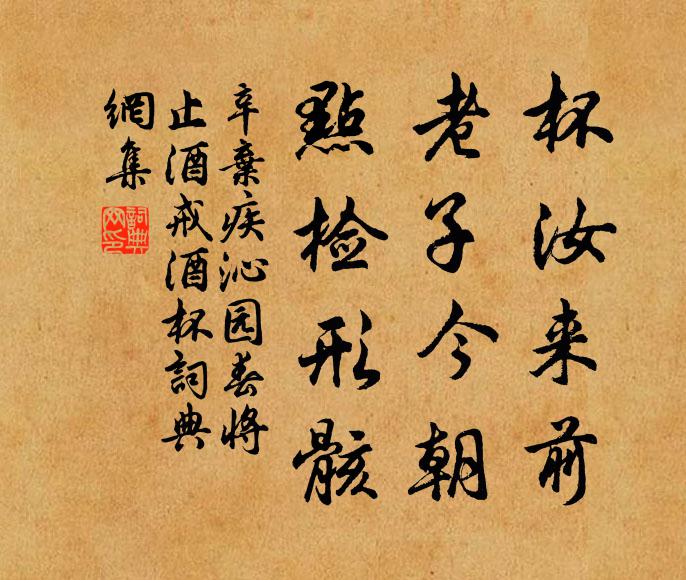 杯汝来前
老子今朝
點检形骸
辛棄疾沁园春将
止酒戒酒杯詞典
網集
詞典
网印